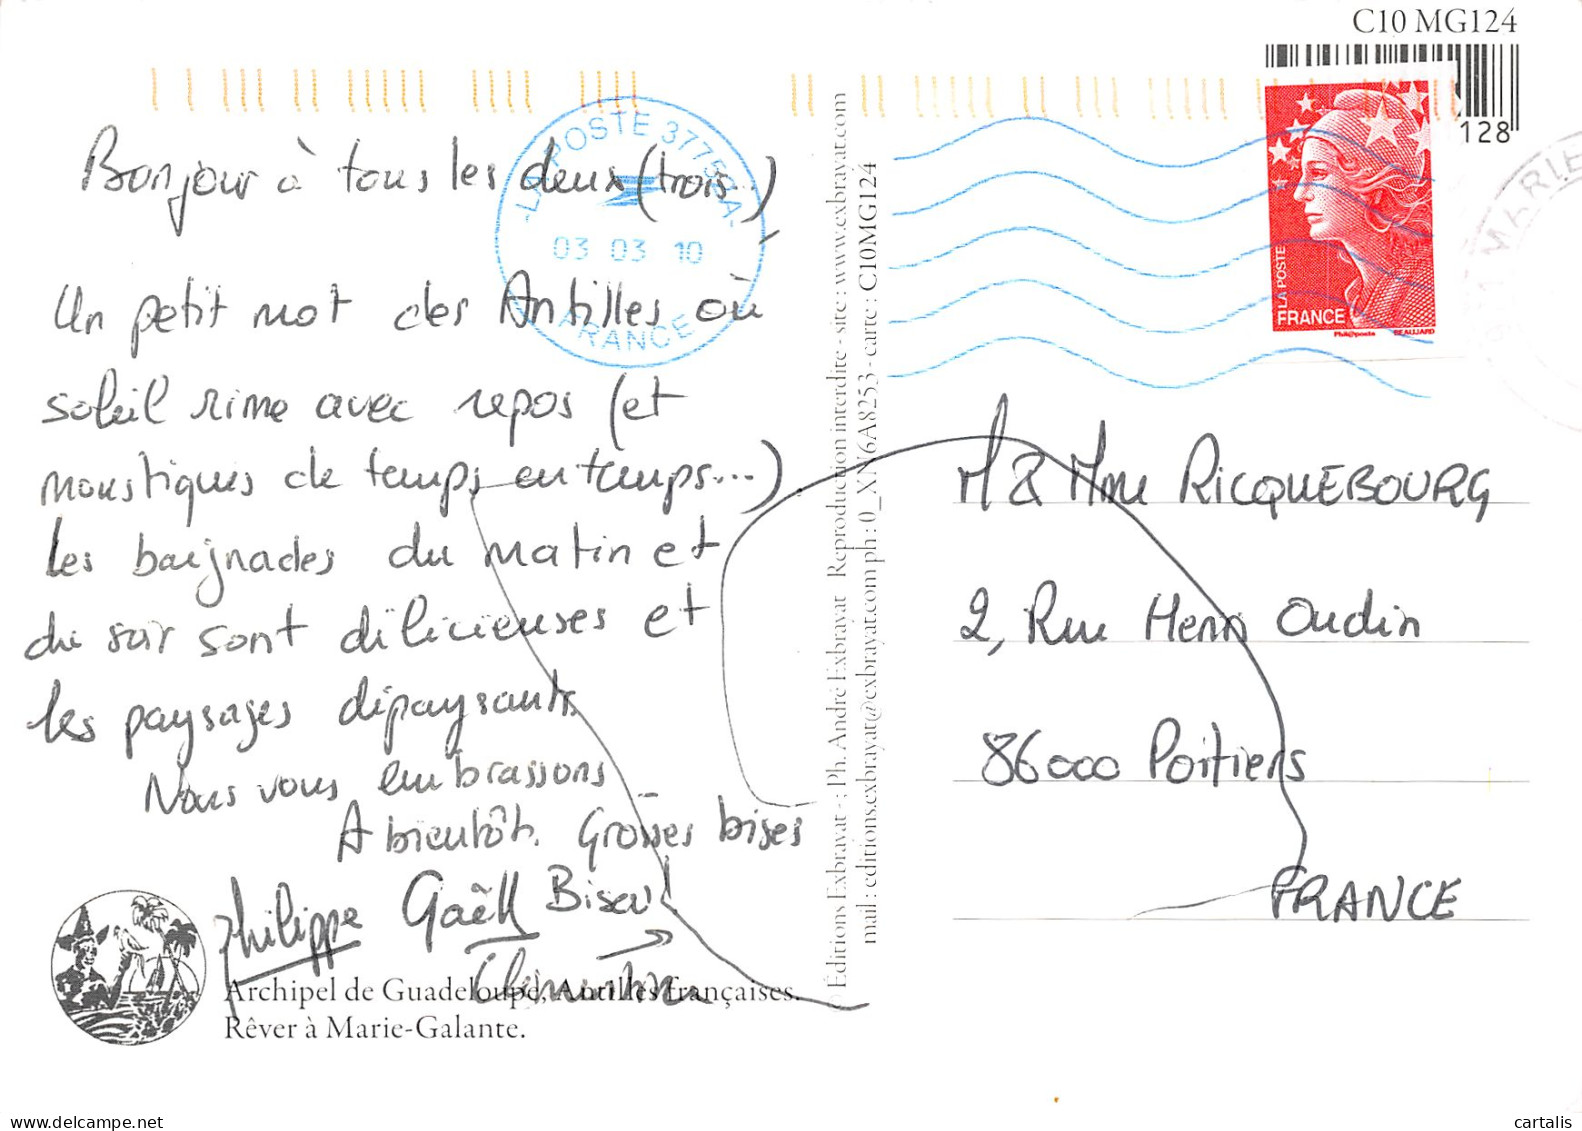 C10 MG124
128
Bonjour à tous les deux (trois...)
Un petit mot des Antilles où
soleil rime avec repos (et
moustiques de temps en temps...)
Les baignades du matin et
du soir sont délicieuses et
les paysages dépaysants.
Nous vous embrassons
A bientôt. Grosses bises
Philippe Gaëll Bises!
Clémentine
Archipel de Guadeloupe, Antilles françaises.
Rêver à Marie-Galante.
LA POSTE 37756A
03 03 10
FRANCE
© Éditions Exbrayat - ; Ph. André Exbrayat Reproduction interdite - site : www.exbrayat.com
mail : editions.exbrayat@exbrayat.com ph : 0_XN6A8253 - carte : C10MG124
LA POSTE
FRANCE
Phil@poste BEAUJARD
M & Mme RICQUEBOURG
2, Rue Henri Oudin
86000 Poitiers
FRANCE
cartalis